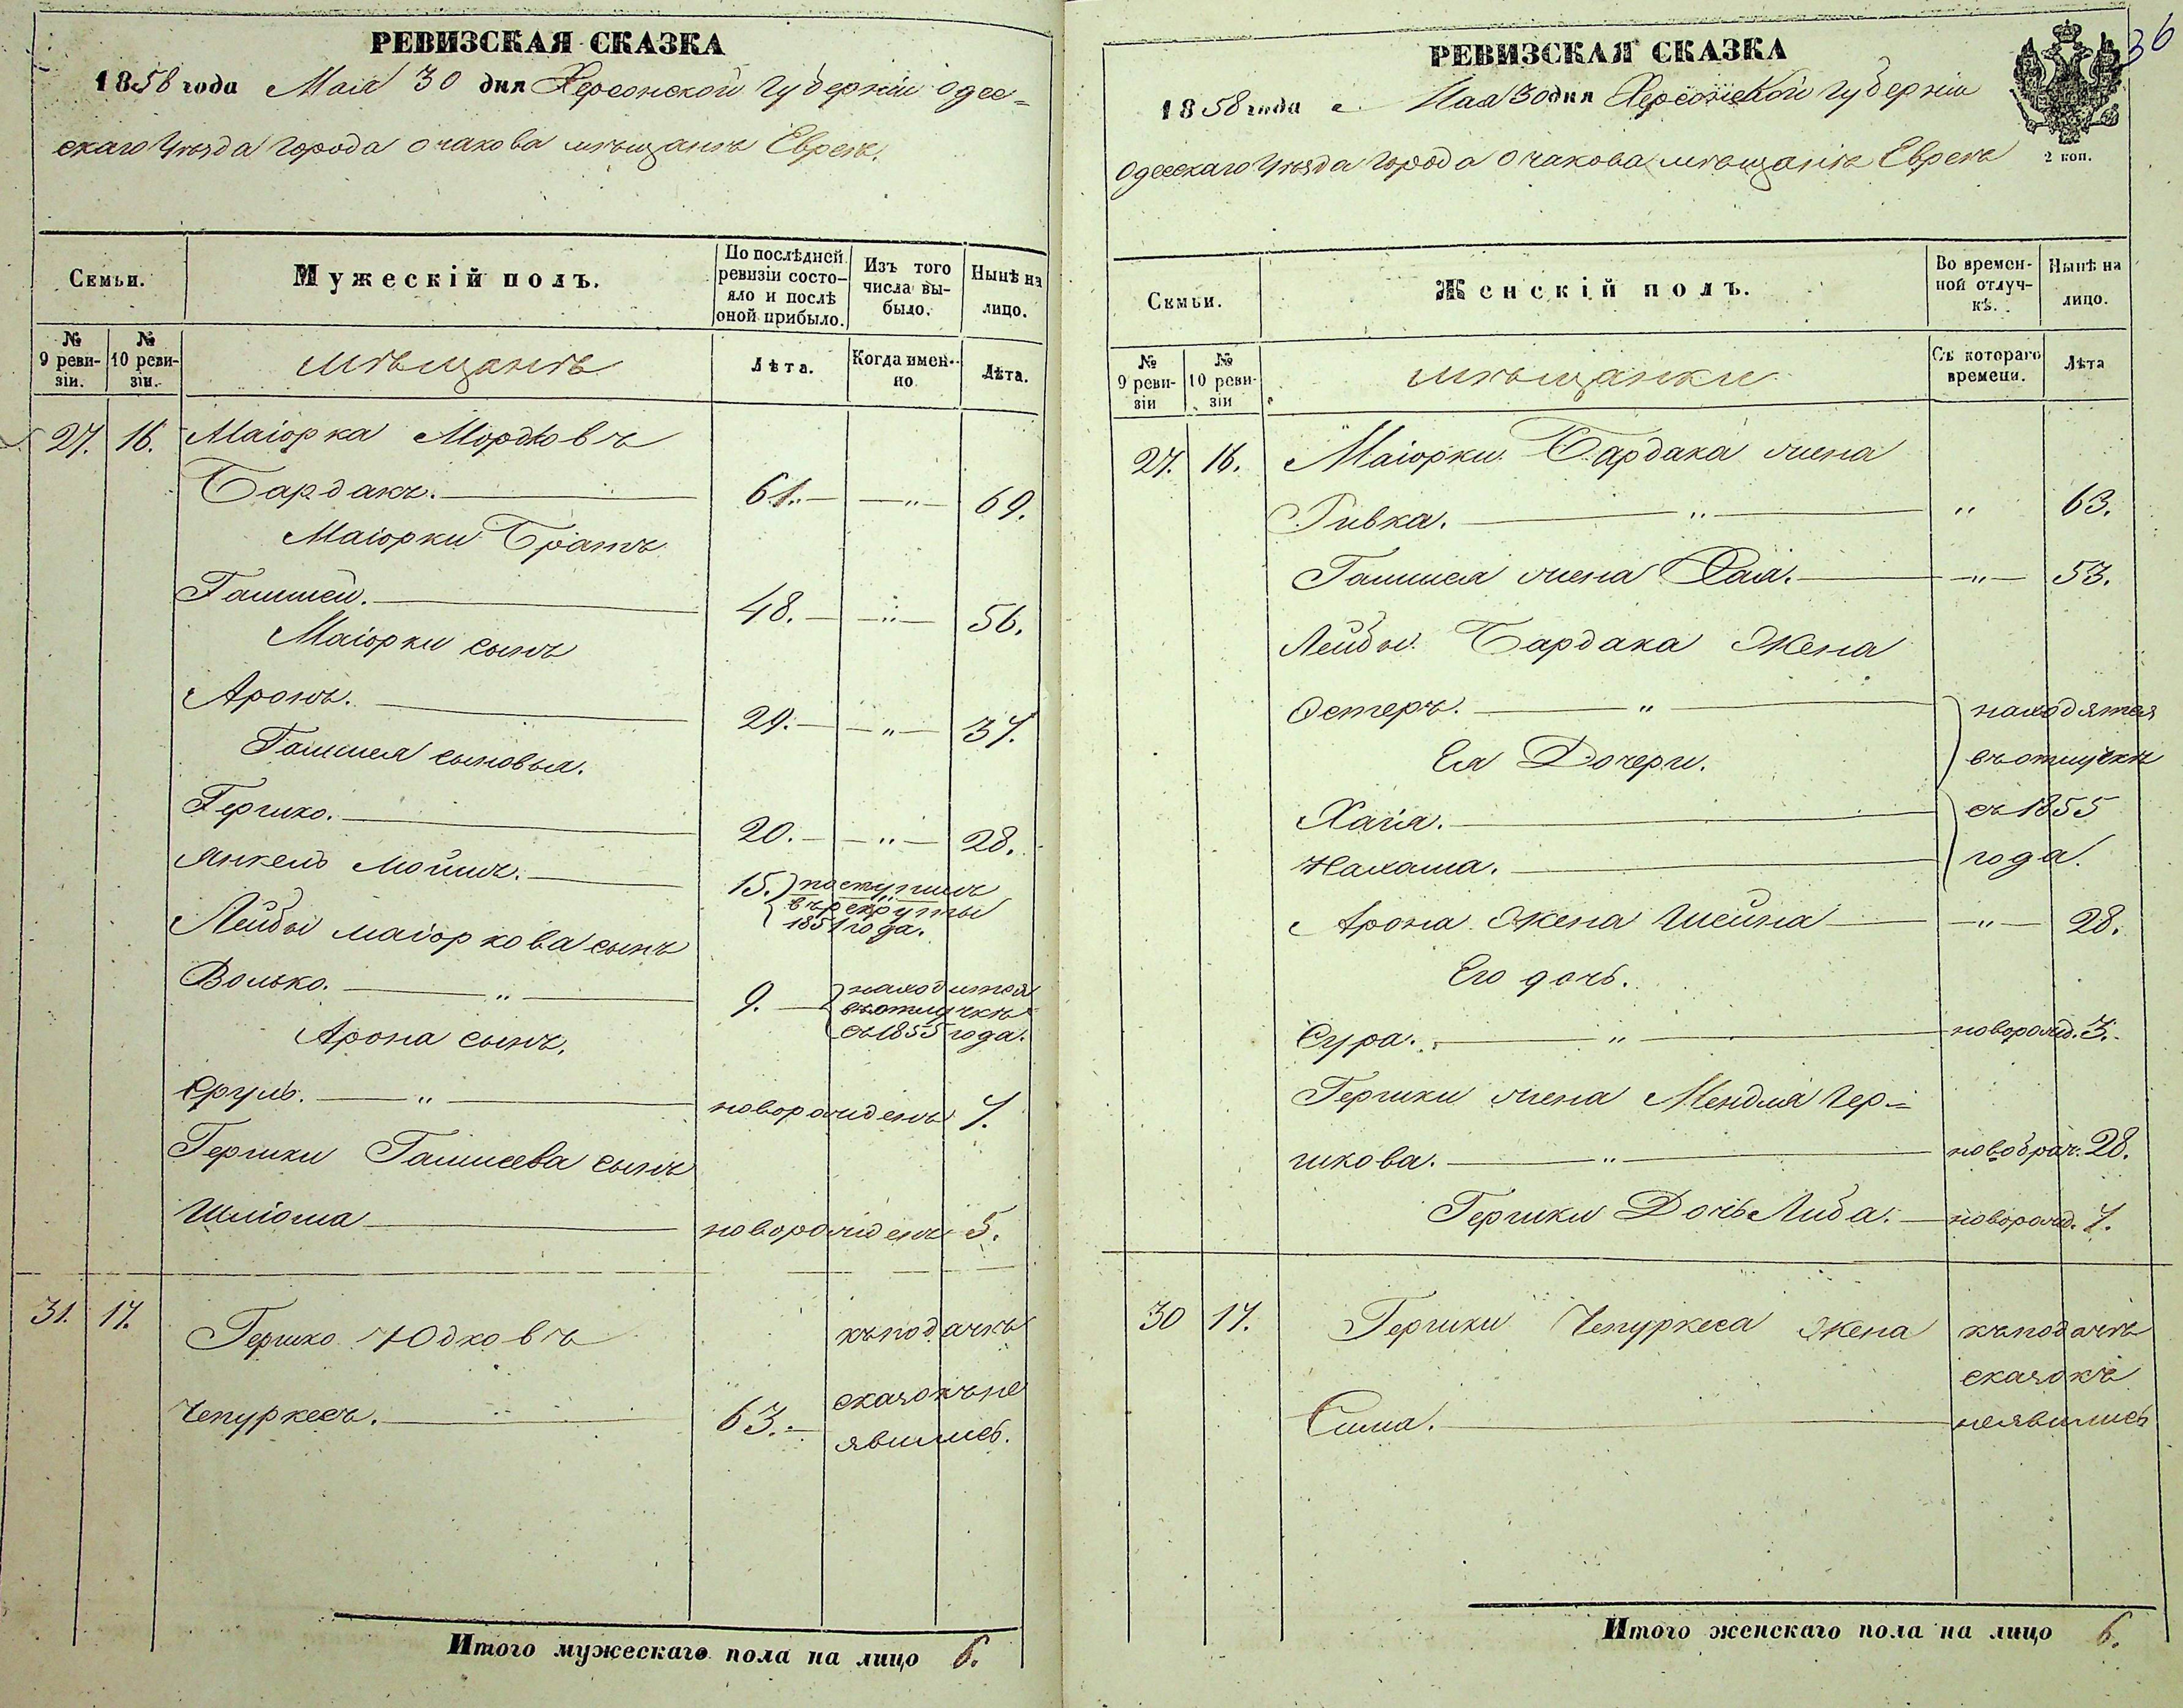 РЕВИЗСКАЯ СКАЗКА
1858 года Мая 30 дня Херсонской губерніи Одес-
скаго Уѣзда города Очакова мѣщанъ Евреевъ.
Семьи.
Мужескій полъ.
По послѣдней ревизіи состо-
яло и послѣ оной прибыло.
Изъ того числа вы-
было.
Нынѣ на лицо.
№ 9 реви-
зіи.
№ 10 реви-
зіи.
мѣщанъ
Лѣта.
Когда имен-
но
Лѣта.
27. 16. Маіорка Мордковъ
Бардакъ. 61. — „ — 69.
Маіорки Братъ
Гамшей. 48. — „ — 56.
Маіорки сынъ
Аронъ. 29. — „ — 37.
Гамшея сыновья.
Гершко. 20. — „ — 28.
Янкель Мойшъ. 15. поступилъ
въ рекруты
1851 года.
Лейбы маіоркова сынъ
Волько. — „ — 9. — находится
въ отлучкѣ
съ 1855 года.
Арона сынъ.
Сруль. — „ — новорожденъ 7.
Гершки Гамшеева сынъ
Шліома новорожденъ 5.
31. 17. Гершко Юдковъ къ подачкѣ
Чепуркесъ. 63. — сказокъ не
явились.
Итого мужескаго пола на лицо 6.
36
РЕВИЗСКАЯ СКАЗКА
1858 года Мая 30 дня Херсонской губерніи
Одесскаго Уѣзда города Очакова мѣщанъ Евреевъ
2 коп.
Семьи.
Женскій полъ.
Во времен-
ной отлуч-
кѣ.
Нынѣ на лицо.
№ 9 реви-
зіи
№ 10 реви-
зіи
мѣщанки
Съ котораго времени.
Лѣта
27. 16. Маіорки Бардака жена
Ривка. — „ — „ 63.
Гамшея жена Хая. — „ — 53.
Лейбы Бардака Жена
Остеръ. — „ — находятся
Ея Дочери. въ отлучкѣ
Хаія. съ 1855
Нахама. года.
Арона Жена Шейна — „ — 28.
Его дочь.
Сура. — „ — новорожд. 3.
Гершки жена Мендля Гер-
шкова. — „ — новобрач. 28.
Гершки Дочь Либа. — новорожд. 7.
30 17. Гершки Чепуркеса Жена къ подачѣ
сказокъ
Сима. не явились
Итого женскаго пола на лицо 6.